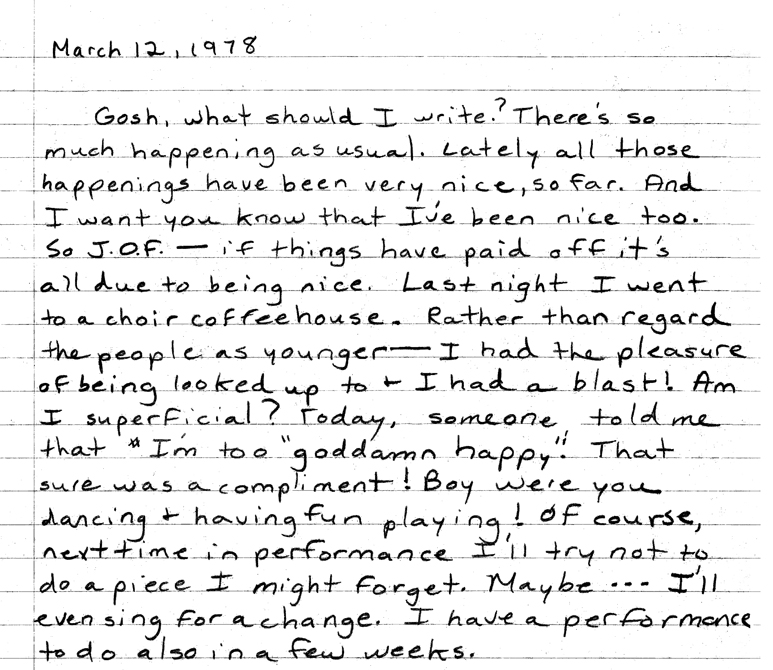 March 12, 1978
Gosh, what should I write? There's so
much happening as usual. Lately all those
happenings have been very nice, so far. And
I want you know that I've been nice too.
So J.O.F. — if things have paid off it's
all due to being nice. Last night I went
to a choir coffeehouse. Rather than regard
the people as younger — I had the pleasure
of being looked up to + I had a blast! Am
I superficial? Today, someone told me
that "I'm too "goddamn happy"! That
sure was a compliment! Boy were you
dancing + having fun playing! Of course,
next time in performance I'll try not to
do a piece I might forget. Maybe --- I'll
even sing for a change. I have a performance
to do also in a few weeks.